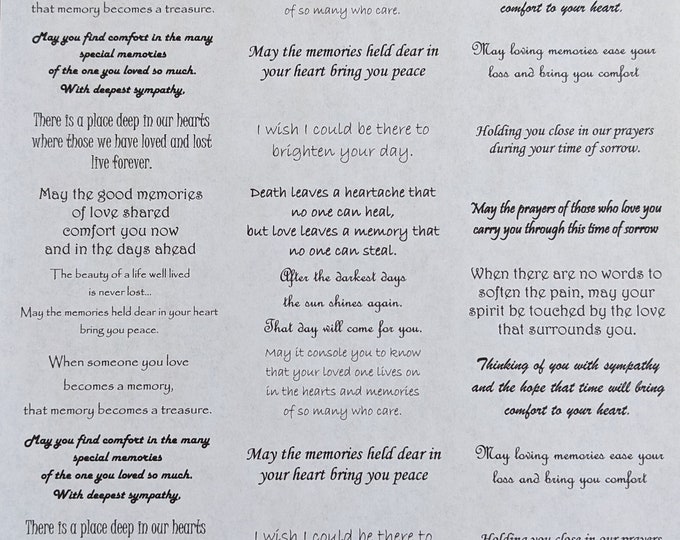 that memory becomes a treasure.
May you find comfort in the many
special memories
of the one you loved so much.
With deepest sympathy,
There is a place deep in our hearts
where those we have loved and lost
live forever.
May the good memories
of love shared
comfort you now
and in the days ahead
The beauty of a life well lived
is never lost...
May the memories held dear in your heart
bring you peace.
When someone you love
becomes a memory,
that memory becomes a treasure.
May you find comfort in the many
special memories
of the one you loved so much.
With deepest sympathy,
There is a place deep in our hearts
of so many who care.
May the memories held dear in
your heart bring you peace
I wish I could be there to
brighten your day.
Death leaves a heartache that
no one can heal,
but love leaves a memory that
no one can steal.
After the darkest days
the sun shines again.
That day will come for you.
May it console you to know
that your loved one lives on
in the hearts and memories
of so many who care.
May the memories held dear in
your heart bring you peace
I wish I could be there to
comfort to your heart.
May loving memories ease your
loss and bring you comfort
Holding you close in our prayers
during your time of sorrow.
May the prayers of those who love you
carry you through this time of sorrow
When there are no words to
soften the pain, may your
spirit be touched by the love
that surrounds you.
Thinking of you with sympathy
and the hope that time will bring
comfort to your heart.
May loving memories ease your
loss and bring you comfort
Holding you close in our prayers